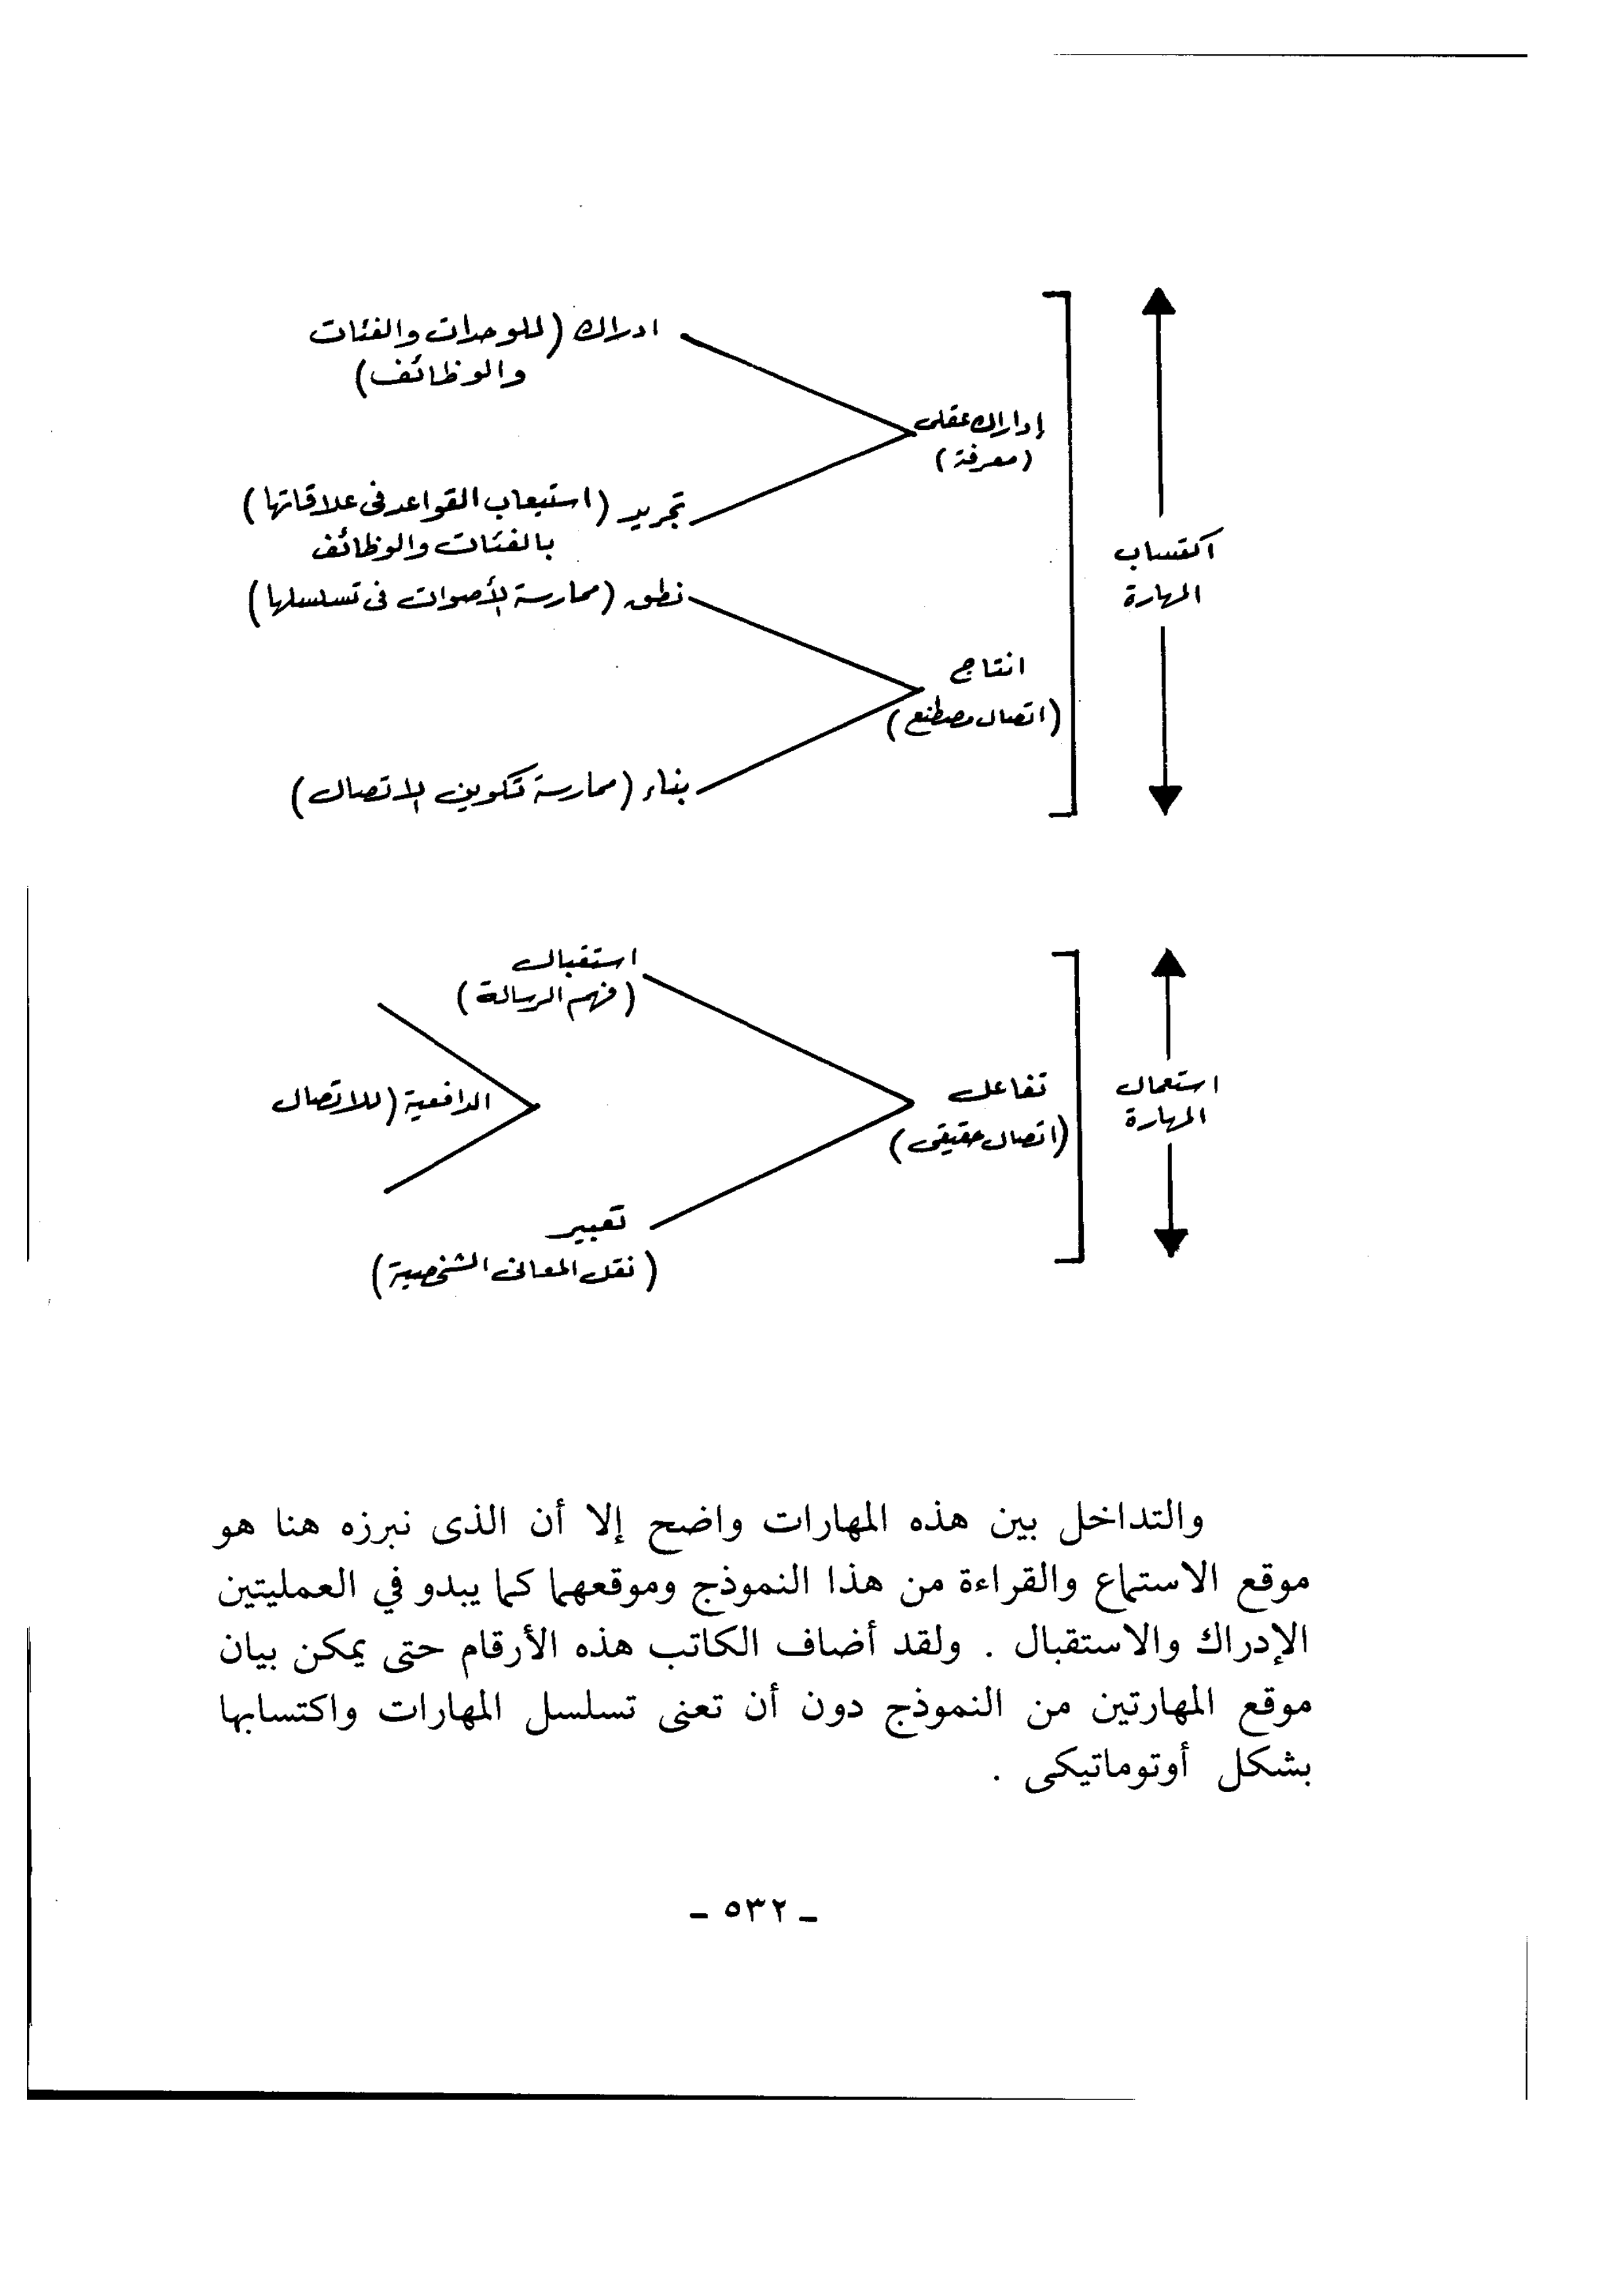 ادراك (للوحدات والفئات
والوظائف)
إداراك عقلى
(معرفة)
تجريد (استيعاب القواعد فى علاقاتها)
بالفئات والوظائف
اكتساب
المهارة
نطق (ممارسة الأصوات فى تسلسلها)
انتاج
(اتصال مصطنع)
بناء (ممارسة تكوين الاتصال)
استقبال
(فهم الرسالة)
استعمال
المهارة
تفاعل
(اتصال حقيقى)
الدافعية (للاتصال
تعبير
(نقل المعانى الشخصية)
والتداخل بين هذه المهارات واضح إلا أن الذى نبرزه هنا هو
موقع الاستماع والقراءة من هذا النموذج وموقعهما كما يبدو في العمليتين
الإدراك والاستقبال . ولقد أضاف الكاتب هذه الأرقام حتى يمكن بيان
موقع المهارتين من النموذج دون أن تعنى تسلسل المهارات واكتسابها
بشكل أوتوماتيكى .
ـ ٥٣٢ ـ